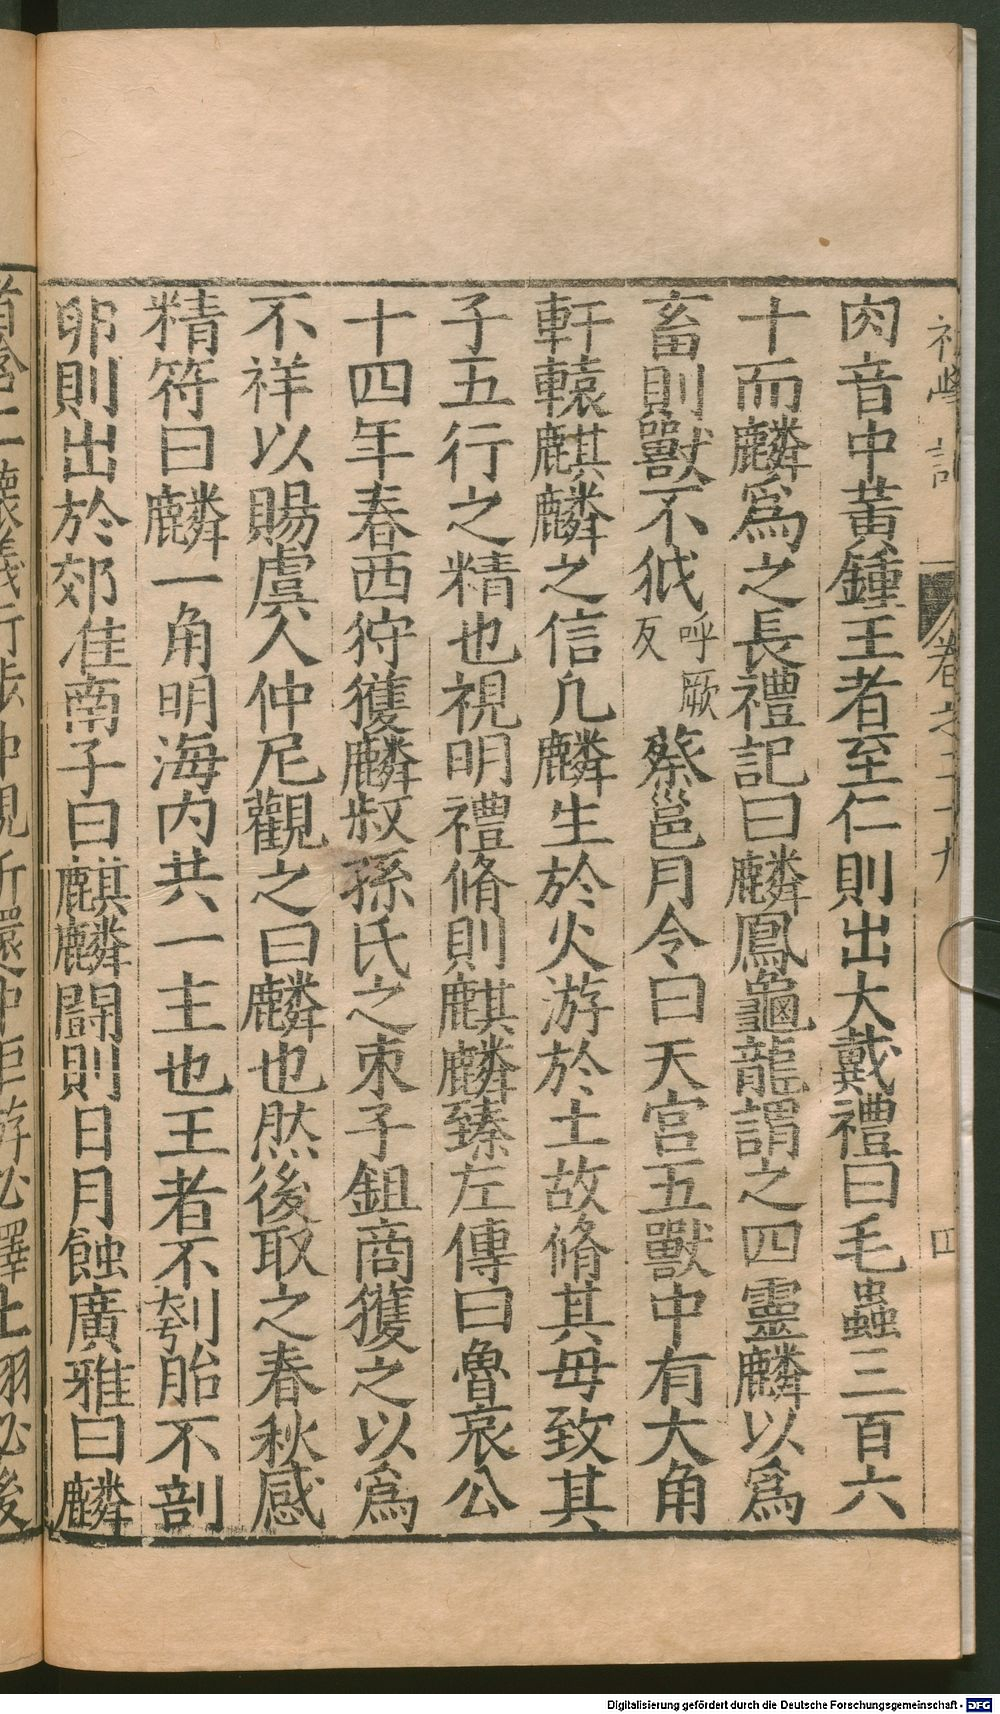 肉音中黃鍾王者至仁則出大戴禮曰毛蟲三百六
十而麟爲之長禮記曰麟鳳龜龍謂之四靈麟以爲
畜則獸不狘呼厥反蔡邕月令曰天宮五獸中有大角
軒轅麒麟之信凡麟生於火游於土故脩其母致其
子五行之精也視明禮脩則麒麟臻左傳曰魯哀公
十四年春西狩獲麟叔孫氏之車子鉏商獲之以爲
不祥以賜虞人仲尼觀之曰麟也然後取之春秋感
精符曰麟一角明海内共一主也王者不刳胎不剖
卵則出於郊淮南子曰麒麟鬭則日月蝕廣雅曰麟
Digitalisierung gefördert durch die Deutsche Forschungsgemeinschaft - DFG